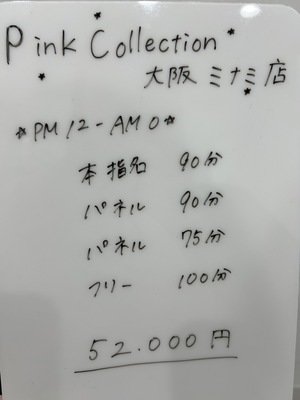 Pink Collection
大阪ミナミ店
★PM12-AM0★
本指名 90分
パネル 90分
パネル 75分
フリー 100分
52.000円